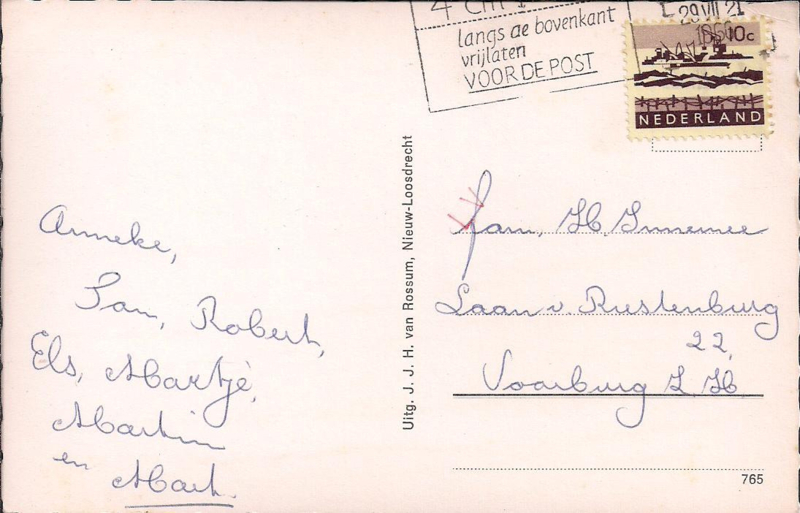 langs de bovenkant
vrijlaten
VOOR DE POST
29 VII 21
10c
NEDERLAND
Anneke,
Sam, Robert,
Els, Martje,
Martin
en Mark.
Uitg. J. J. H. van Rossum, Nieuw-Loosdrecht
Fam. H. Innemee
Laan v. Rustenburg
22,
Voorburg Z.H.
765